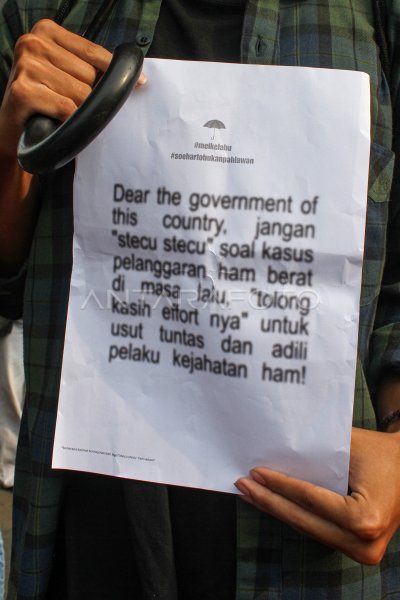 #meikelabu
#soehartobukanpahlawan
Dear the government of
this country, jangan
"stecu stecu" soal kasus
pelanggaran ham berat
di masa lalu, "tolong
kasih effort nya" untuk
usut tuntas dan adili
pelaku kejahatan ham!
ANTARAFOTO